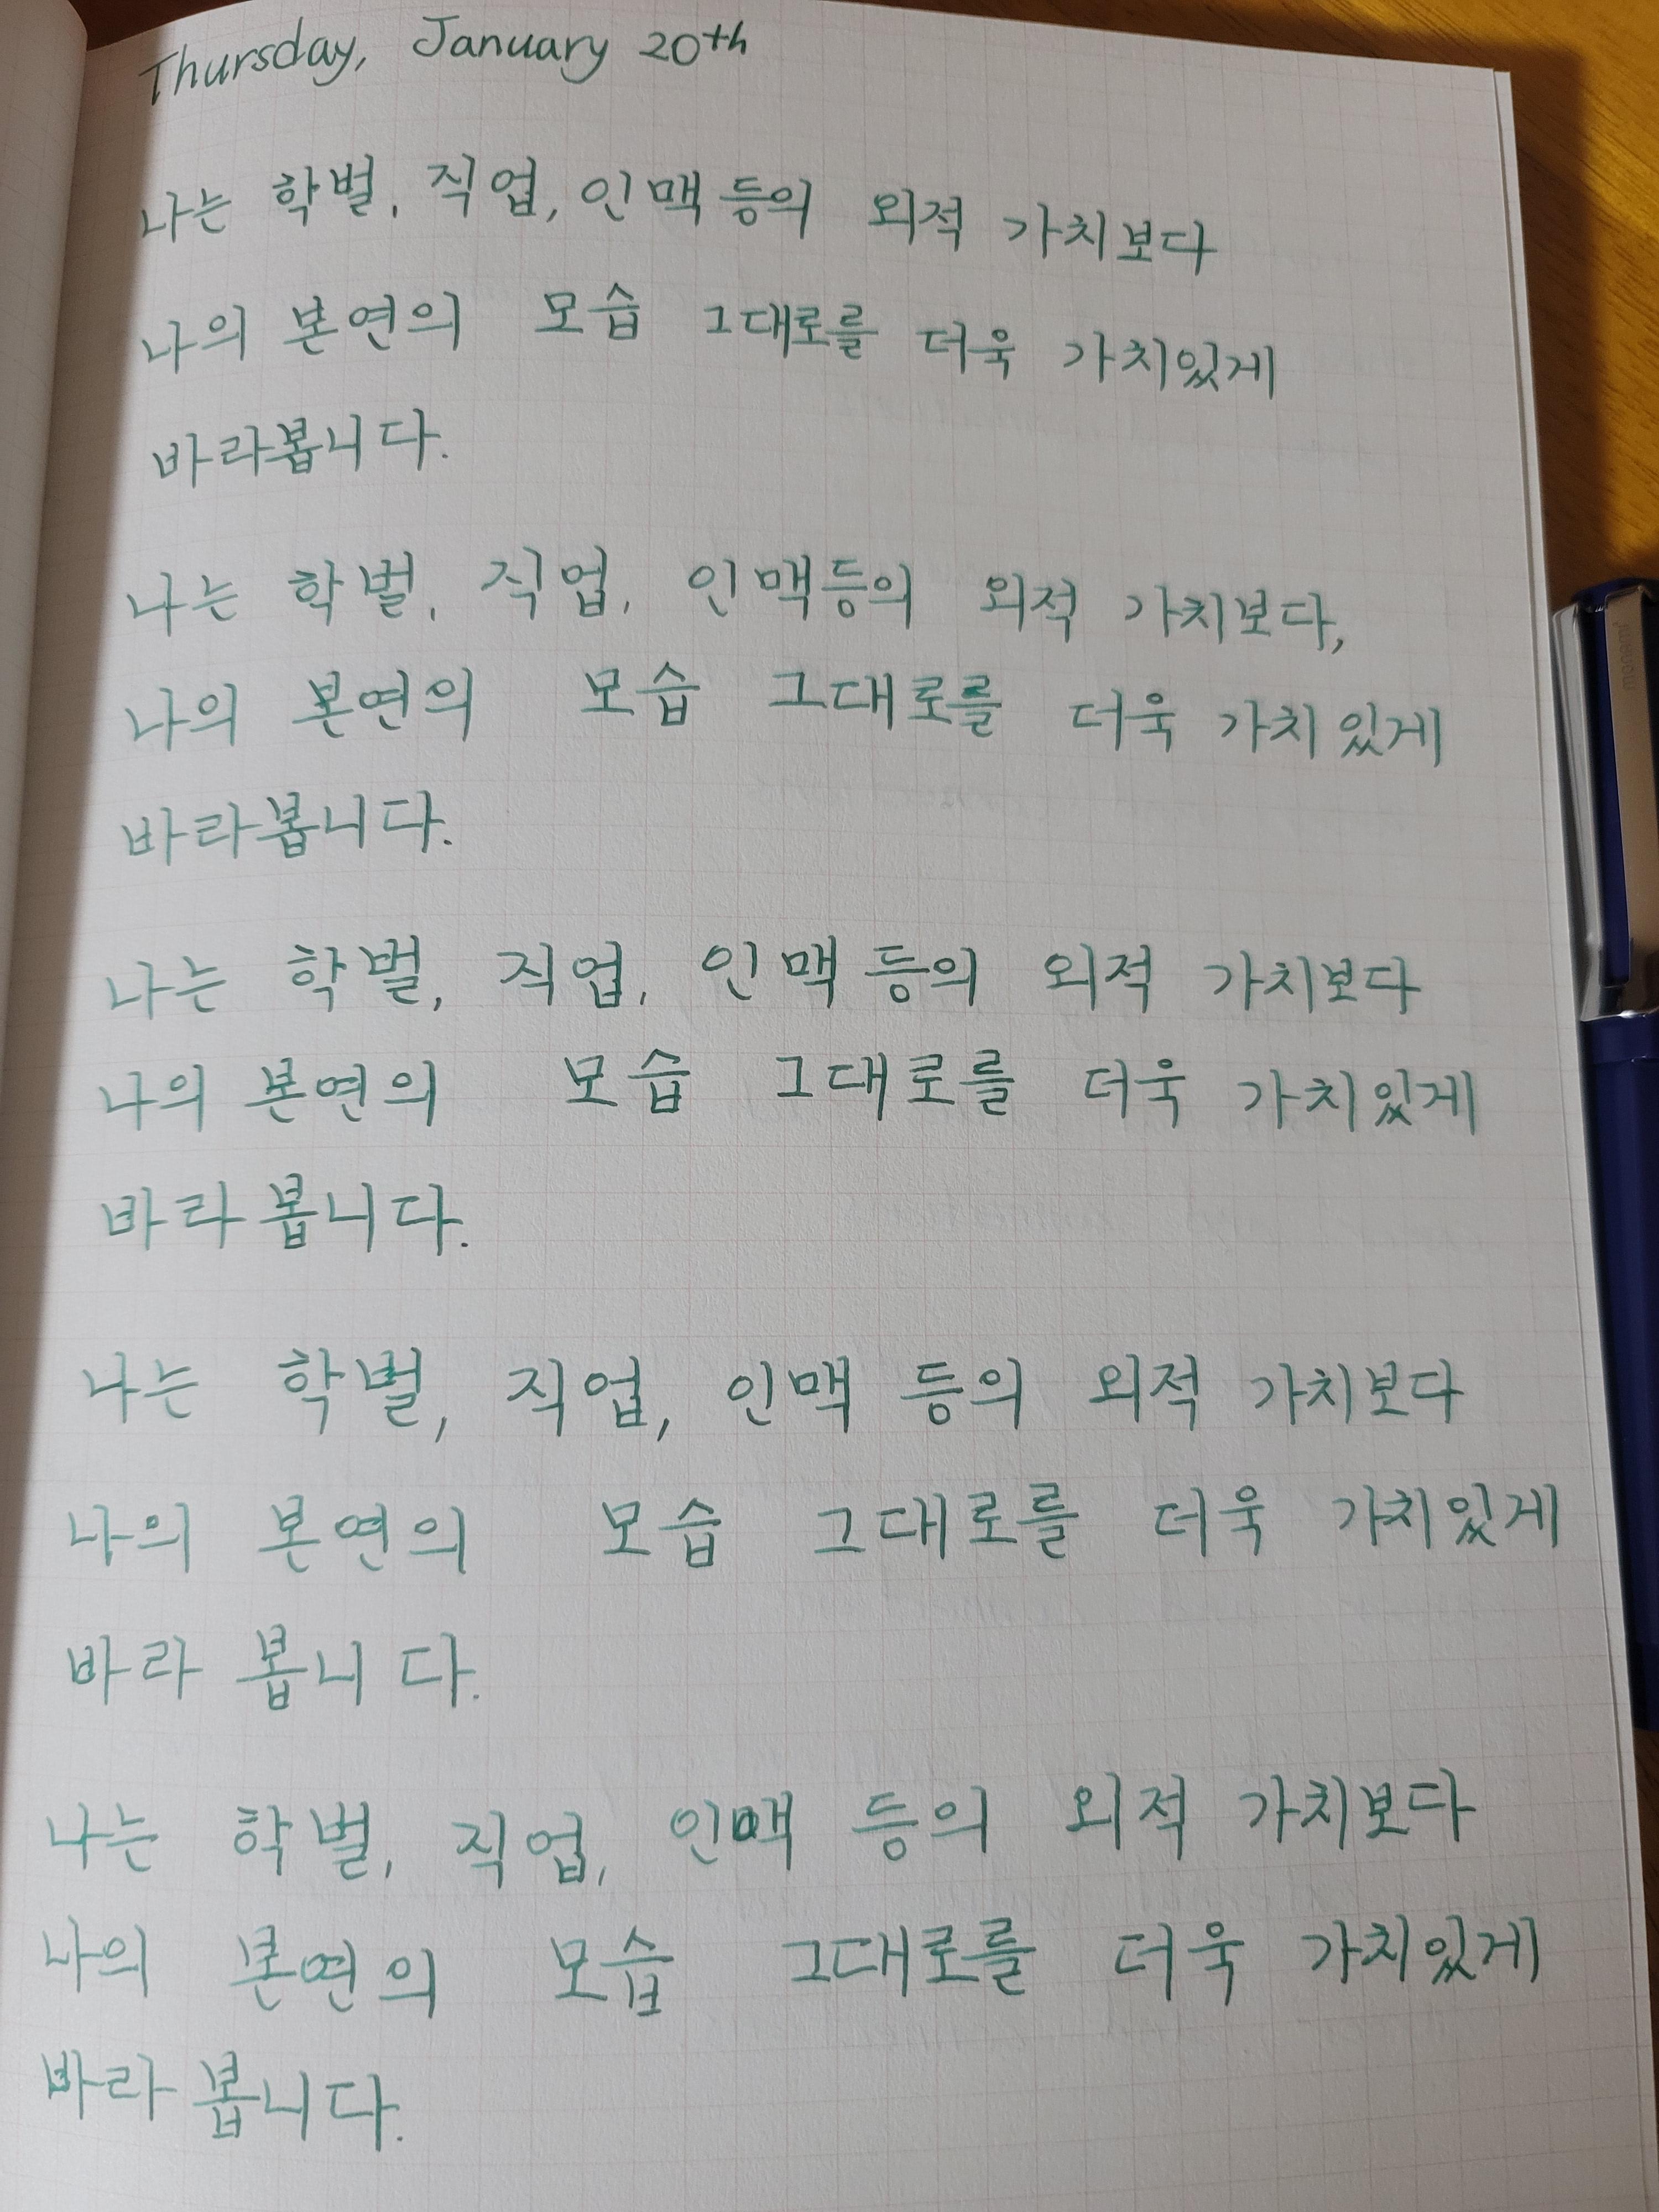 Thursday, January 20th
나는 학벌, 직업, 인맥 등의 외적 가치보다
나의 본연의 모습 그대로를 더욱 가치있게
바라봅니다.
나는 학벌, 직업, 인맥등의 외적 가치보다,
나의 본연의 모습 그대로를 더욱 가치있게
바라봅니다.
나는 학벌, 직업, 인맥 등의 외적 가치보다
나의 본연의 모습 그대로를 더욱 가치있게
바라봅니다.
나는 학벌, 직업, 인맥 등의 외적 가치보다
나의 본연의 모습 그대로를 더욱 가치있게
바라봅니다.
나는 학벌, 직업, 인맥 등의 외적 가치보다
나의 본연의 모습 그대로를 더욱 가치있게
바라봅니다.